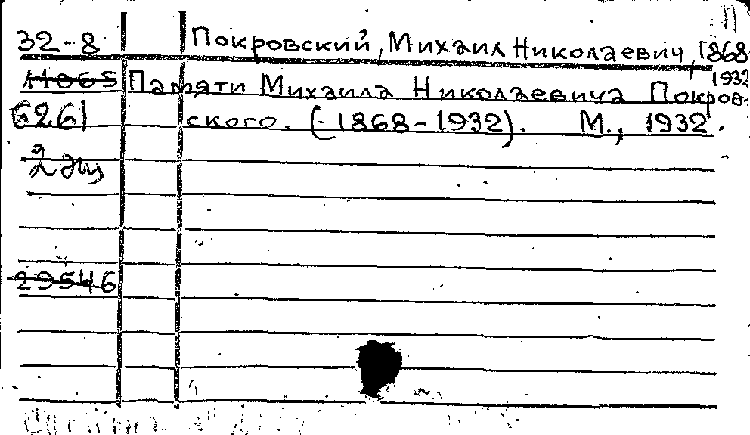 32-8 Покровский, Михаил Николаевич, 1868
1932
11865 Памяти Михаила Николаевича Покров-
6261 ского. (1868-1932). М., 1932.
2 экз
29546